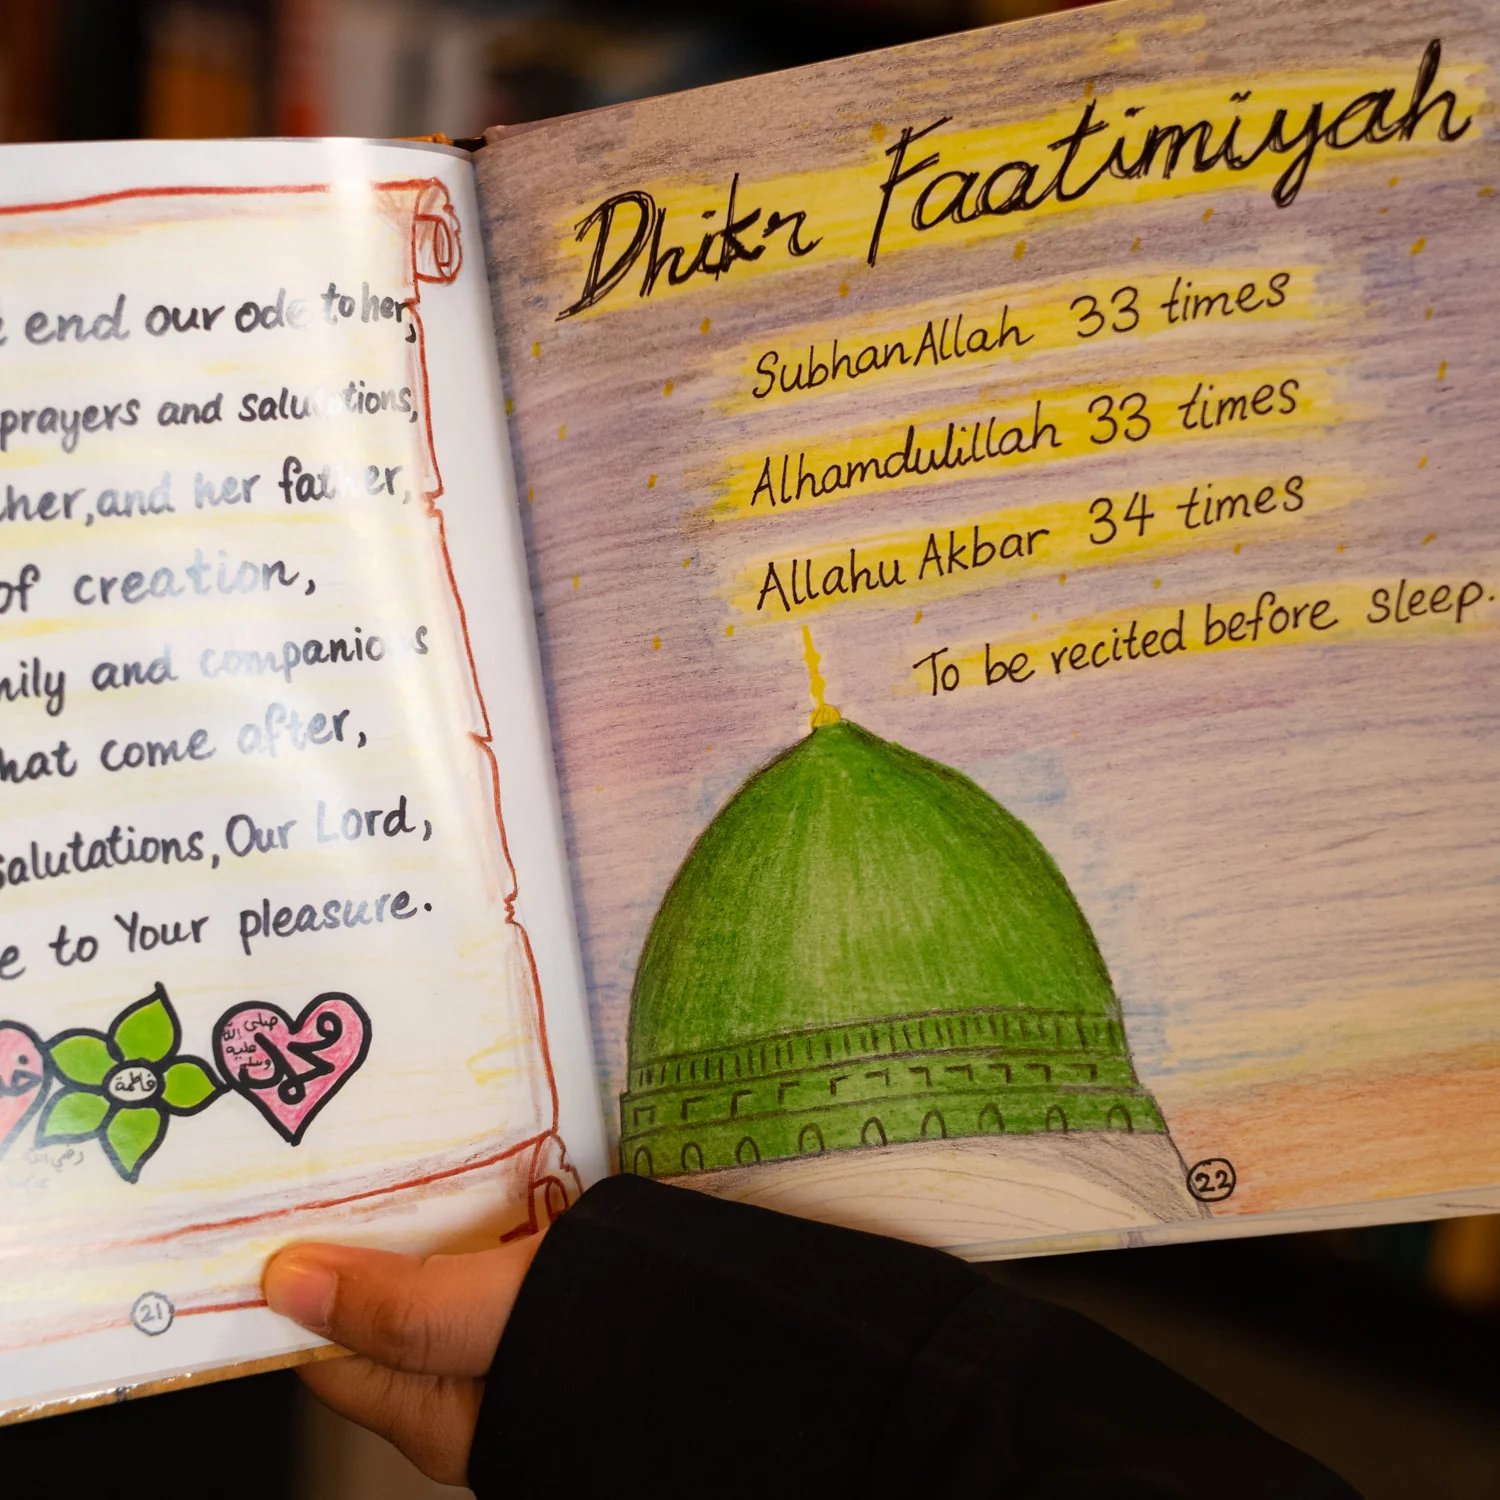 end our ode to her,
prayers and salutations,
her, and her father,
of creation,
and companions
come after,
salutations, Our Lord,
to Your pleasure.
صلى الله
عليه
وسلم
محمد
فاطمة
رضي الله
21
Dhikr Faatimiyah
SubhanAllah 33 times
Alhamdulillah 33 times
Allahu Akbar 34 times
To be recited before sleep.
22